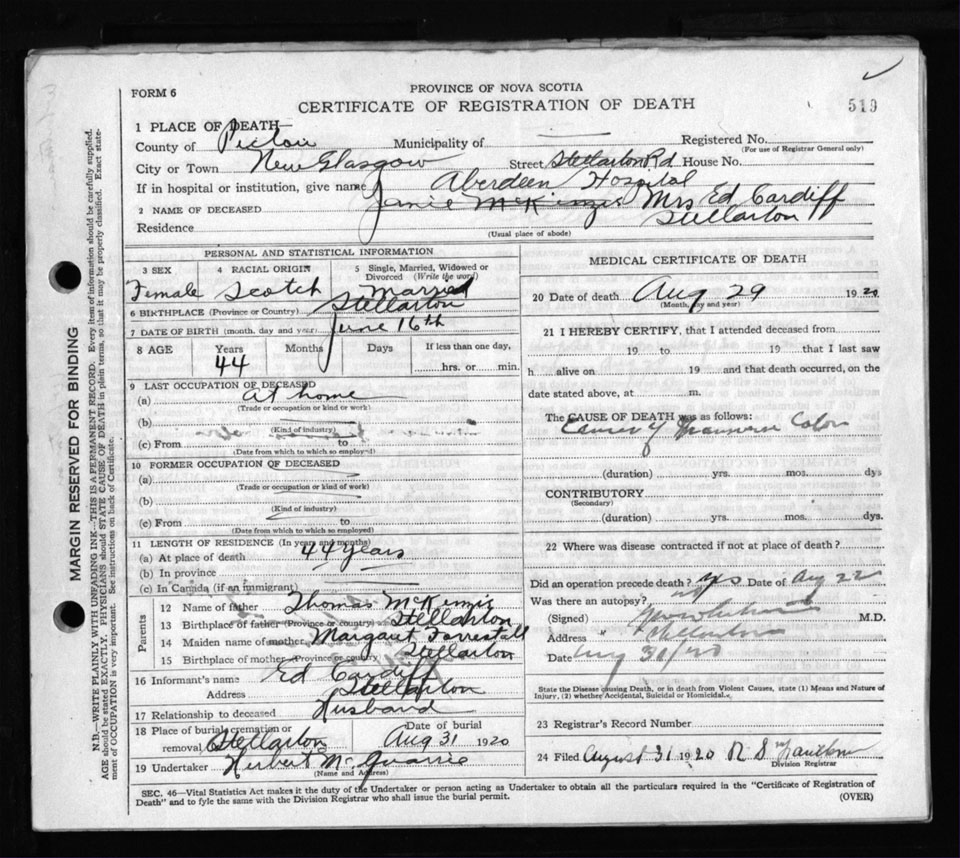 FORM 6
PROVINCE OF NOVA SCOTIA
CERTIFICATE OF REGISTRATION OF DEATH
519
1 PLACE OF DEATH—
County of Pictou Municipality of Registered No.
(For use of Registrar General only)
City or Town New Glasgow Street Stellarton Rd. House No.
If in hospital or institution, give name Aberdeen Hospital
2 NAME OF DECEASED Janie McKinzie Mrs Ed Cardiff
Residence Stellarton
(Usual place of abode)
PERSONAL AND STATISTICAL INFORMATION
3 SEX 4 RACIAL ORIGIN 5 Single, Married, Widowed or Divorced (Write the word)
Female Scotch Married
6 BIRTHPLACE (Province or Country) Stellarton
7 DATE OF BIRTH (month, day and year) June 16th
8 AGE Years Months Days If less than one day,
44 hrs. or min.
9 LAST OCCUPATION OF DECEASED
(a) at home
(Trade or occupation or kind or work)
(b)
(Kind of industry)
(c) From to
(Date from which to which so employed)
10 FORMER OCCUPATION OF DECEASED
(a)
(Trade or occupation or kind of work)
(b)
(Kind of industry)
(c) From to
(Date from which to which so employed)
11 LENGTH OF RESIDENCE (In years and months)
(a) At place of death 44 years
(b) In province
(c) In Canada (if an immigrant)
Parents
12 Name of father Thomas McKinzie
13 Birthplace of father (Province or country) Stellarton
14 Maiden name of mother Margaret Forrestall
15 Birthplace of mother (Province or country) Stellarton
16 Informant's name Ed Cardiff
Address Stellarton
17 Relationship to deceased Husband
18 Place of burial, cremation or removal Stellarton Date of burial Aug 31 1920
19 Undertaker Herbert McQuarrie
(Name and Address)
MEDICAL CERTIFICATE OF DEATH
20 Date of death Aug 29 1920
(Month, day and year)
21 I HEREBY CERTIFY, that I attended deceased from
19 to 19 that I last saw
h alive on 19 and that death occurred, on the
date stated above, at m.
The CAUSE OF DEATH was as follows:
Cancer of Transverse Colon
(duration) yrs. mos. dys
CONTRIBUTORY
(Secondary)
(duration) yrs. mos. dys.
22 Where was disease contracted if not at place of death?
Did an operation precede death? yes Date of Aug 22
Was there an autopsy? no
(Signed) M.D.
Address Stellarton
Date Aug 31/20
State the Disease causing Death, or in death from Violent Causes, state (1) Means and Nature of
Injury, (2) whether Accidental, Suicidal or Homicidal.
23 Registrar's Record Number
24 Filed August 31 1920 R S
Division Registrar
SEC. 46—Vital Statistics Act makes it the duty of the Undertaker or person acting as Undertaker to obtain all the particulars required in the "Certificate of Registration of
Death" and to fyle the same with the Division Registrar who shall issue the burial permit.
(OVER)
MARGIN RESERVED FOR BINDING
N.D.—WRITE PLAINLY WITH UNFADING INK—THIS IS A PERMANENT RECORD. Every item of information should be carefully supplied.
AGE should be stated EXACTLY. PHYSICIANS should STATE CAUSE OF DEATH in plain terms, so that it may be properly classified. Exact state-
ment of OCCUPATION is very important. See instructions on back of Certificate.